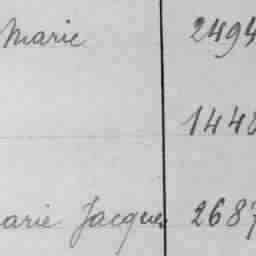 Marie 2494
144
arie Jacques 2687